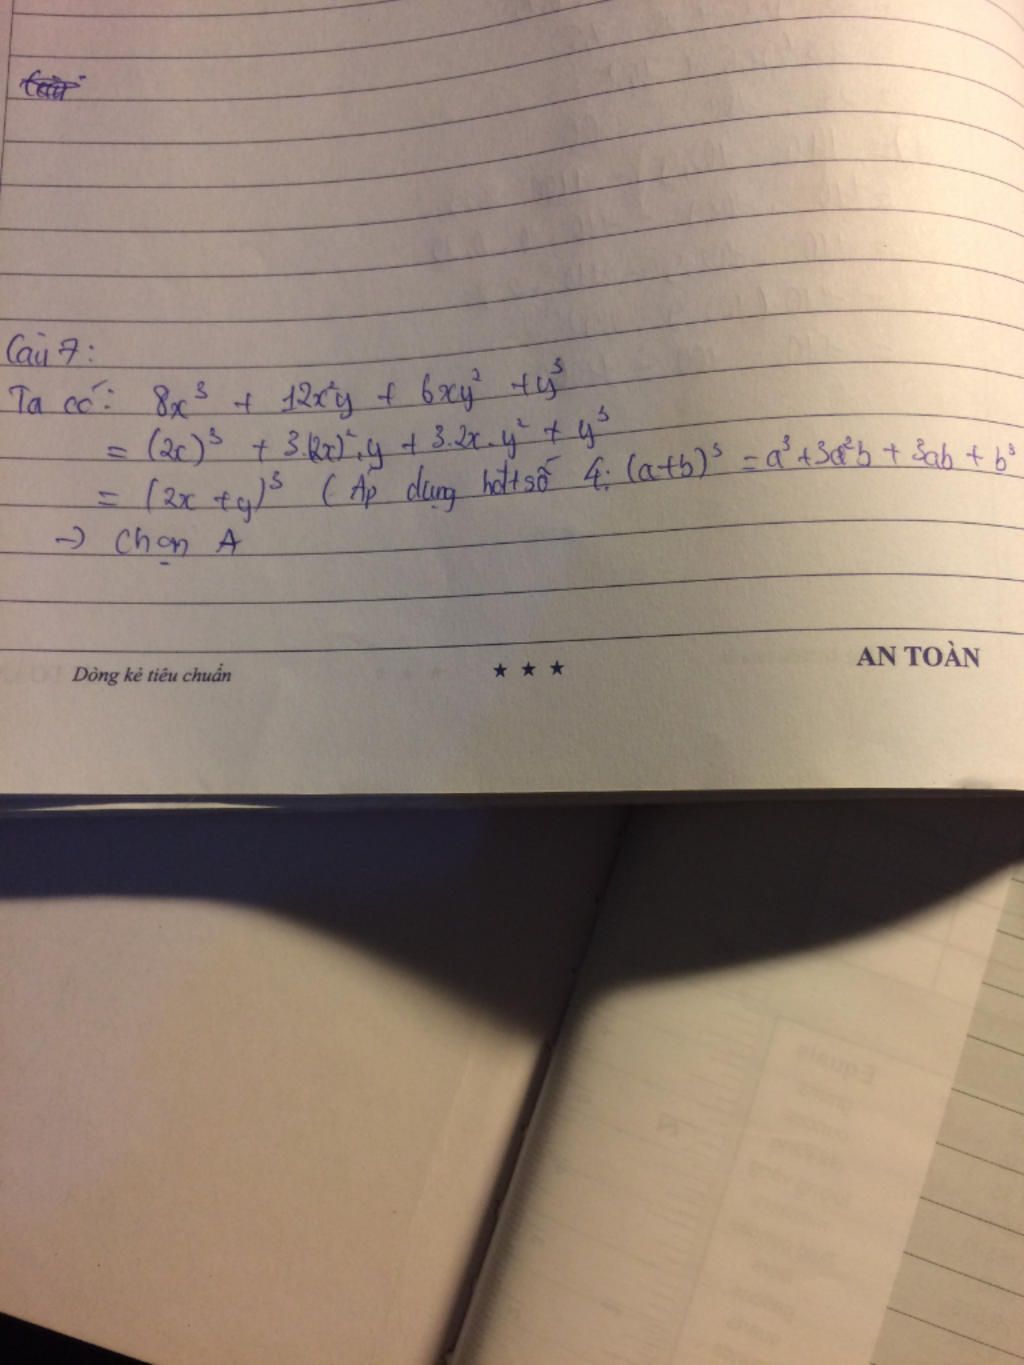 Câu 7:
Ta có: 8x³ + 12x²y + 6xy² + y³
= (2x)³ + 3.(2x)².y + 3.2x.y² + y³
= (2x + y)³ ( Áp dụng hđt số 4: (a+b)³ = a³ + 3a²b + 3ab + b³
→ Chọn A
Dòng kẻ tiêu chuẩn ★ ★ ★ AN TOÀN
Equals